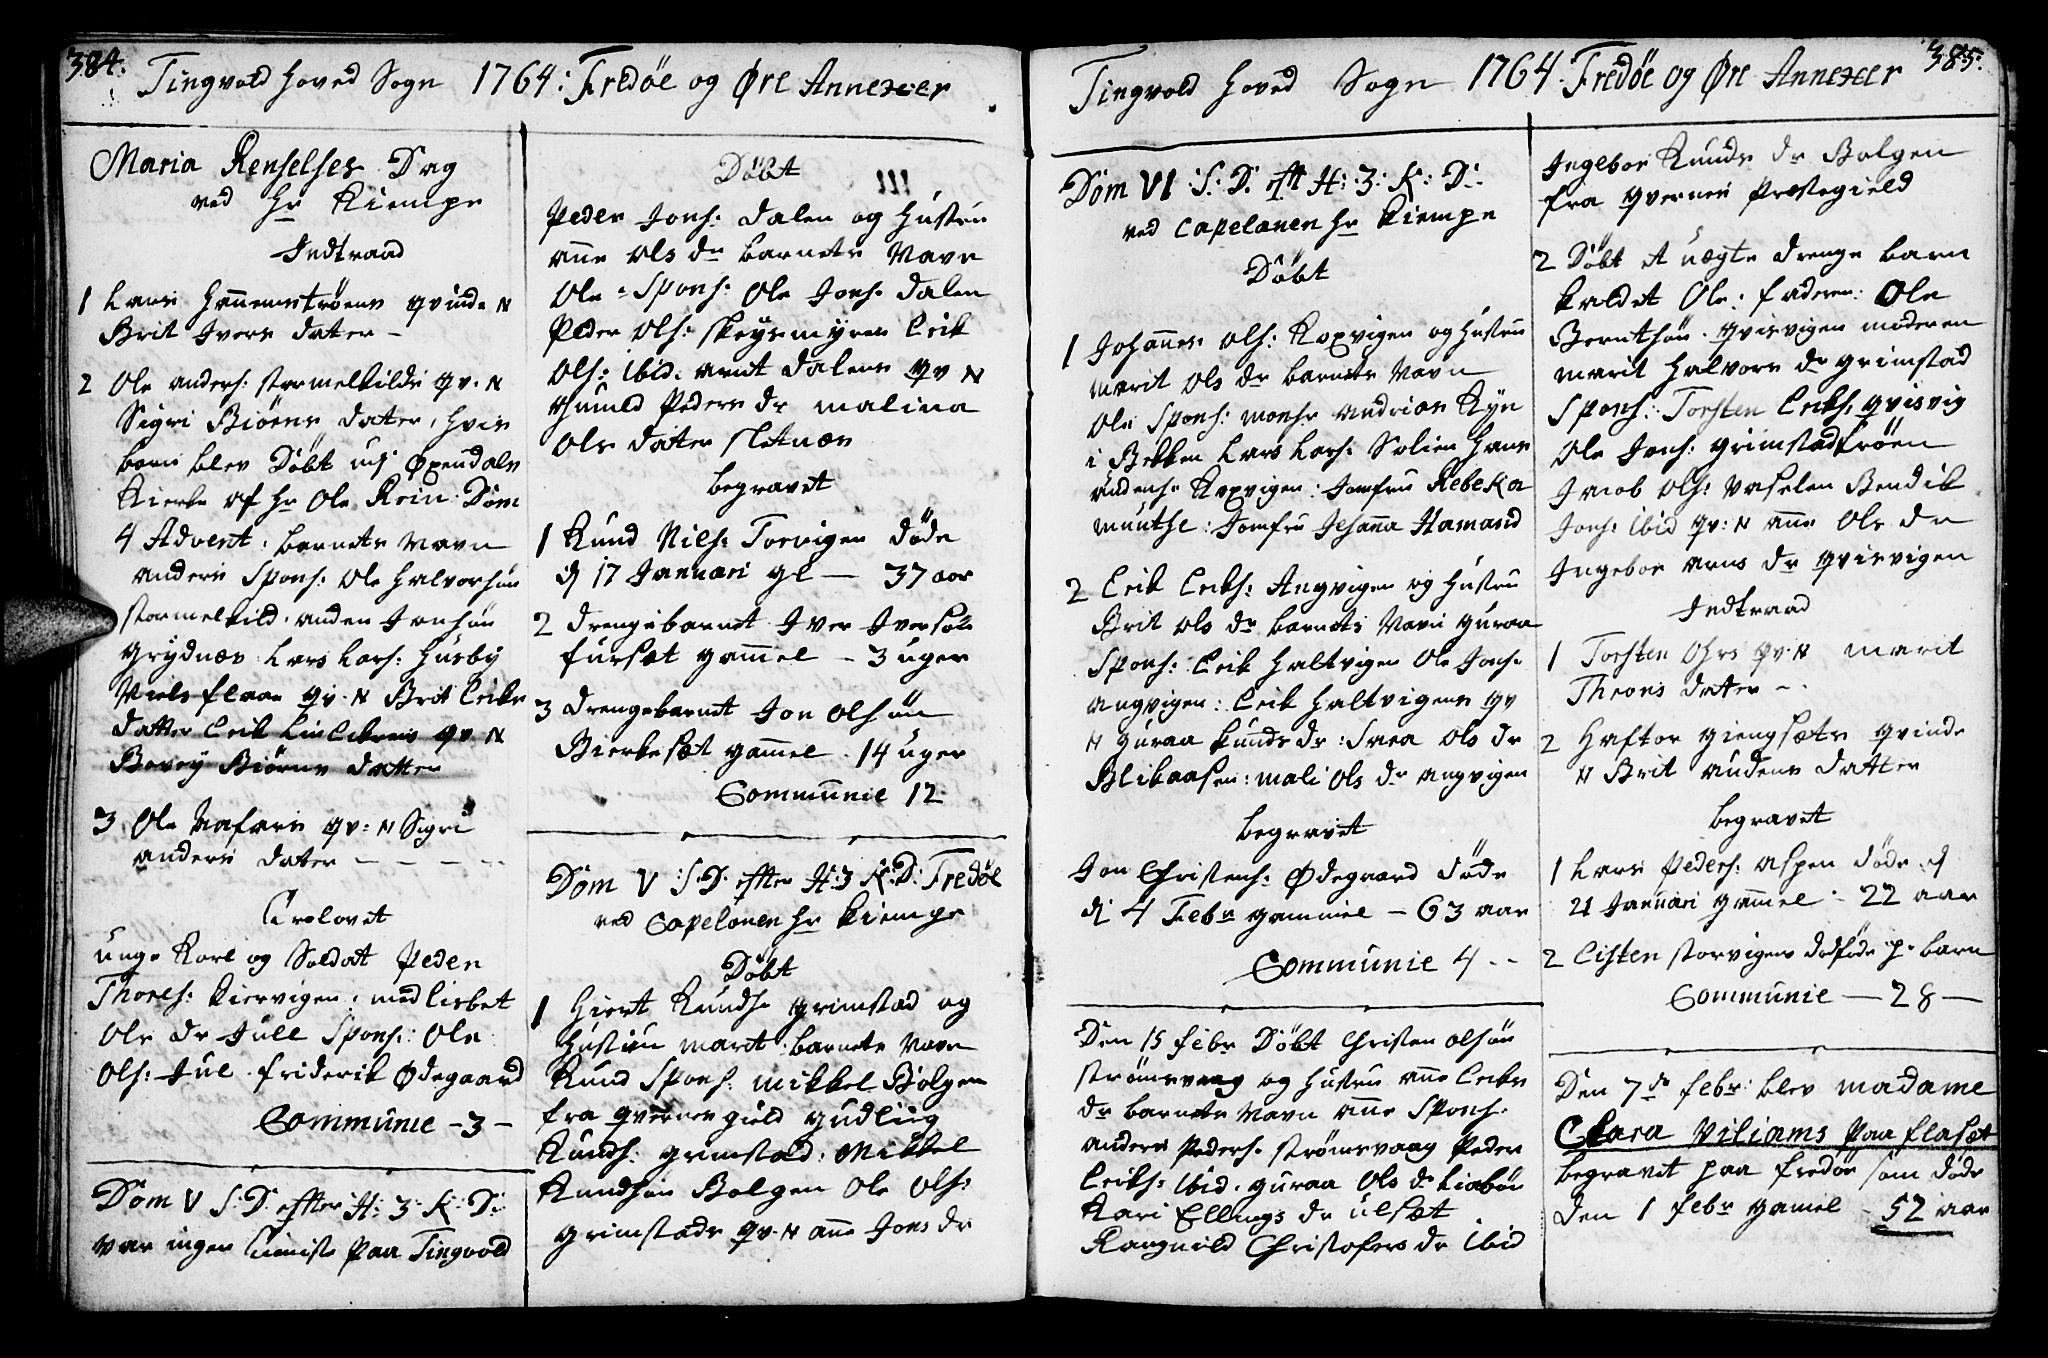 384.
Tingvold hoved Sogn 1764: Fredøe og Øre Annexer
Maria Renselses Dag
ved Hr Kiempe
Indtraad
1 Lars Hanemstrøens qvinde N
Brit Ivers dater –
2 Ole anders: stormelkilds qv. N
Sigri Biørns dater, hvis
barn blev Døbt udj Øxendals
Kierke af Hr Ole Rein: Dom
4 Advent. barnets Navn
anders Spons: Ole halvorsøn
stormelkild. anden Jonsøn
Grydnæs Lars Lars: Husby
Niels flaae qv. N Brit Eriks
datter Erik qv. N
Biørns datter
3 Ole Nafars qv: N Sigri
anders dater – – – –
Trolovet
unge Karl og Soldat Peder
Thores: Kiervigen. med lisbet
Ols dr Jull Spons: Ole
Ols: Jul. friderik Ødegaard
Communie – 3 –
Dom V S: D: effter H: 3: K: D:
var ingen Tieniste paa Tingvold
Døbt
Peder Jons: dalen og Hustru
ane Ols dr barnets Navn
Ole = Spons: Ole Jons. dalen
Peder Ols: skeysmyren Erik
Ols: ibid. arnt dalens qv N
Peders dr malina
Ols dater sletnæs
begravet
1 Knud Niels: Torvigen døde
dj 17 Januari gl — 37 aar
2 drengebarnet Iver Iversøn
fursæt gamel – 3 uger
3 drengebarnet Jon Olsøn
Bierkesæt gamel. 14 uger
Communie 12
Dom V :S: D: effter H: 3 K: D: Fredøe
ved Capelanen Hr Kiempe
Døbt
1 Siert Knuds. grimstad og
Hustru marit. barnets Navn
Knud Spons: mikkel Bolgen
fra qvernes gield gudlug
Knuds: grimstad. Mikkel
Knudsøn Bolgen Ole Ols:
grimstads qv. N ane Jons dr
385.
Tingvold hoved Sogn 1764. Fredøe og Øre Annexer
Dom VI :S: D. eft H: 3: K: D:
ved Capelanen Hr Kiempe
Døbt
1 Johannes Ols: Koxvigen og Hustru
marit Ols dr barnets Navn
Ole Spons: monsr andrias Kyn
i Bekken Lars Lars: Solien Hans
andens. Koxvigen: Jomfru Rebeka
Munthe: Jomfru Jehanna Hamand
2 Erik Eriks: Angvigen og Hustru
Brit Ols dr barnets Navn guraa
Spons: Erik haltvigen Ole Jons.
angvigen: Erik haltvigens qv
N guraa knuds dr: Sara Ols dr
Blikaasen: mali Ols dr angvigen
begravet
Jon Christens: Ødegaard døde
dj 4 Febr gammel – 63 aar
Communie 4 – –
Den 15 febr Døbt Christen olsøn
strømsvaag og Hustru ane Eriks
dr barnets Navn ane Spons.
anders Peders. strømsvaag Peder
Eriks: ibid. guraa Ols dr
Kari Ellings dr ulsæt
Rangnild Christofers dr ibid
Ingebor Knuds dr Bolgen
fra qvernes Præstegield
2 Døbt et uægte drenge barn
kaldet Ole: faderen: Ole
Berntsøn. qvisvigen moderen
marit halvors dr grimstad
Spons: Torsten Eriks: qvisvig
Ole Jons: grimstadtrøen
Jacob Ols: Vaselen Bendik
Jons: ibid qv: N ane Ols dr
Ingebor arns dr qvisvigen
Indtraad
1 Torsten qv. N marit
Throns dater –
2 Haftor giengsæts qvinde
N Brit andens datter
begravet
1 Lars Peders: aspen døde dj
21 Januari gamel – 22 aar
2 storvigens dødføde p. barn
Communie — 28 —
Den 7de febr: blev madame
Clara Viliams paa flasæt
begravet paa fredøe som døde
den 1 febr gamel – 52 aar